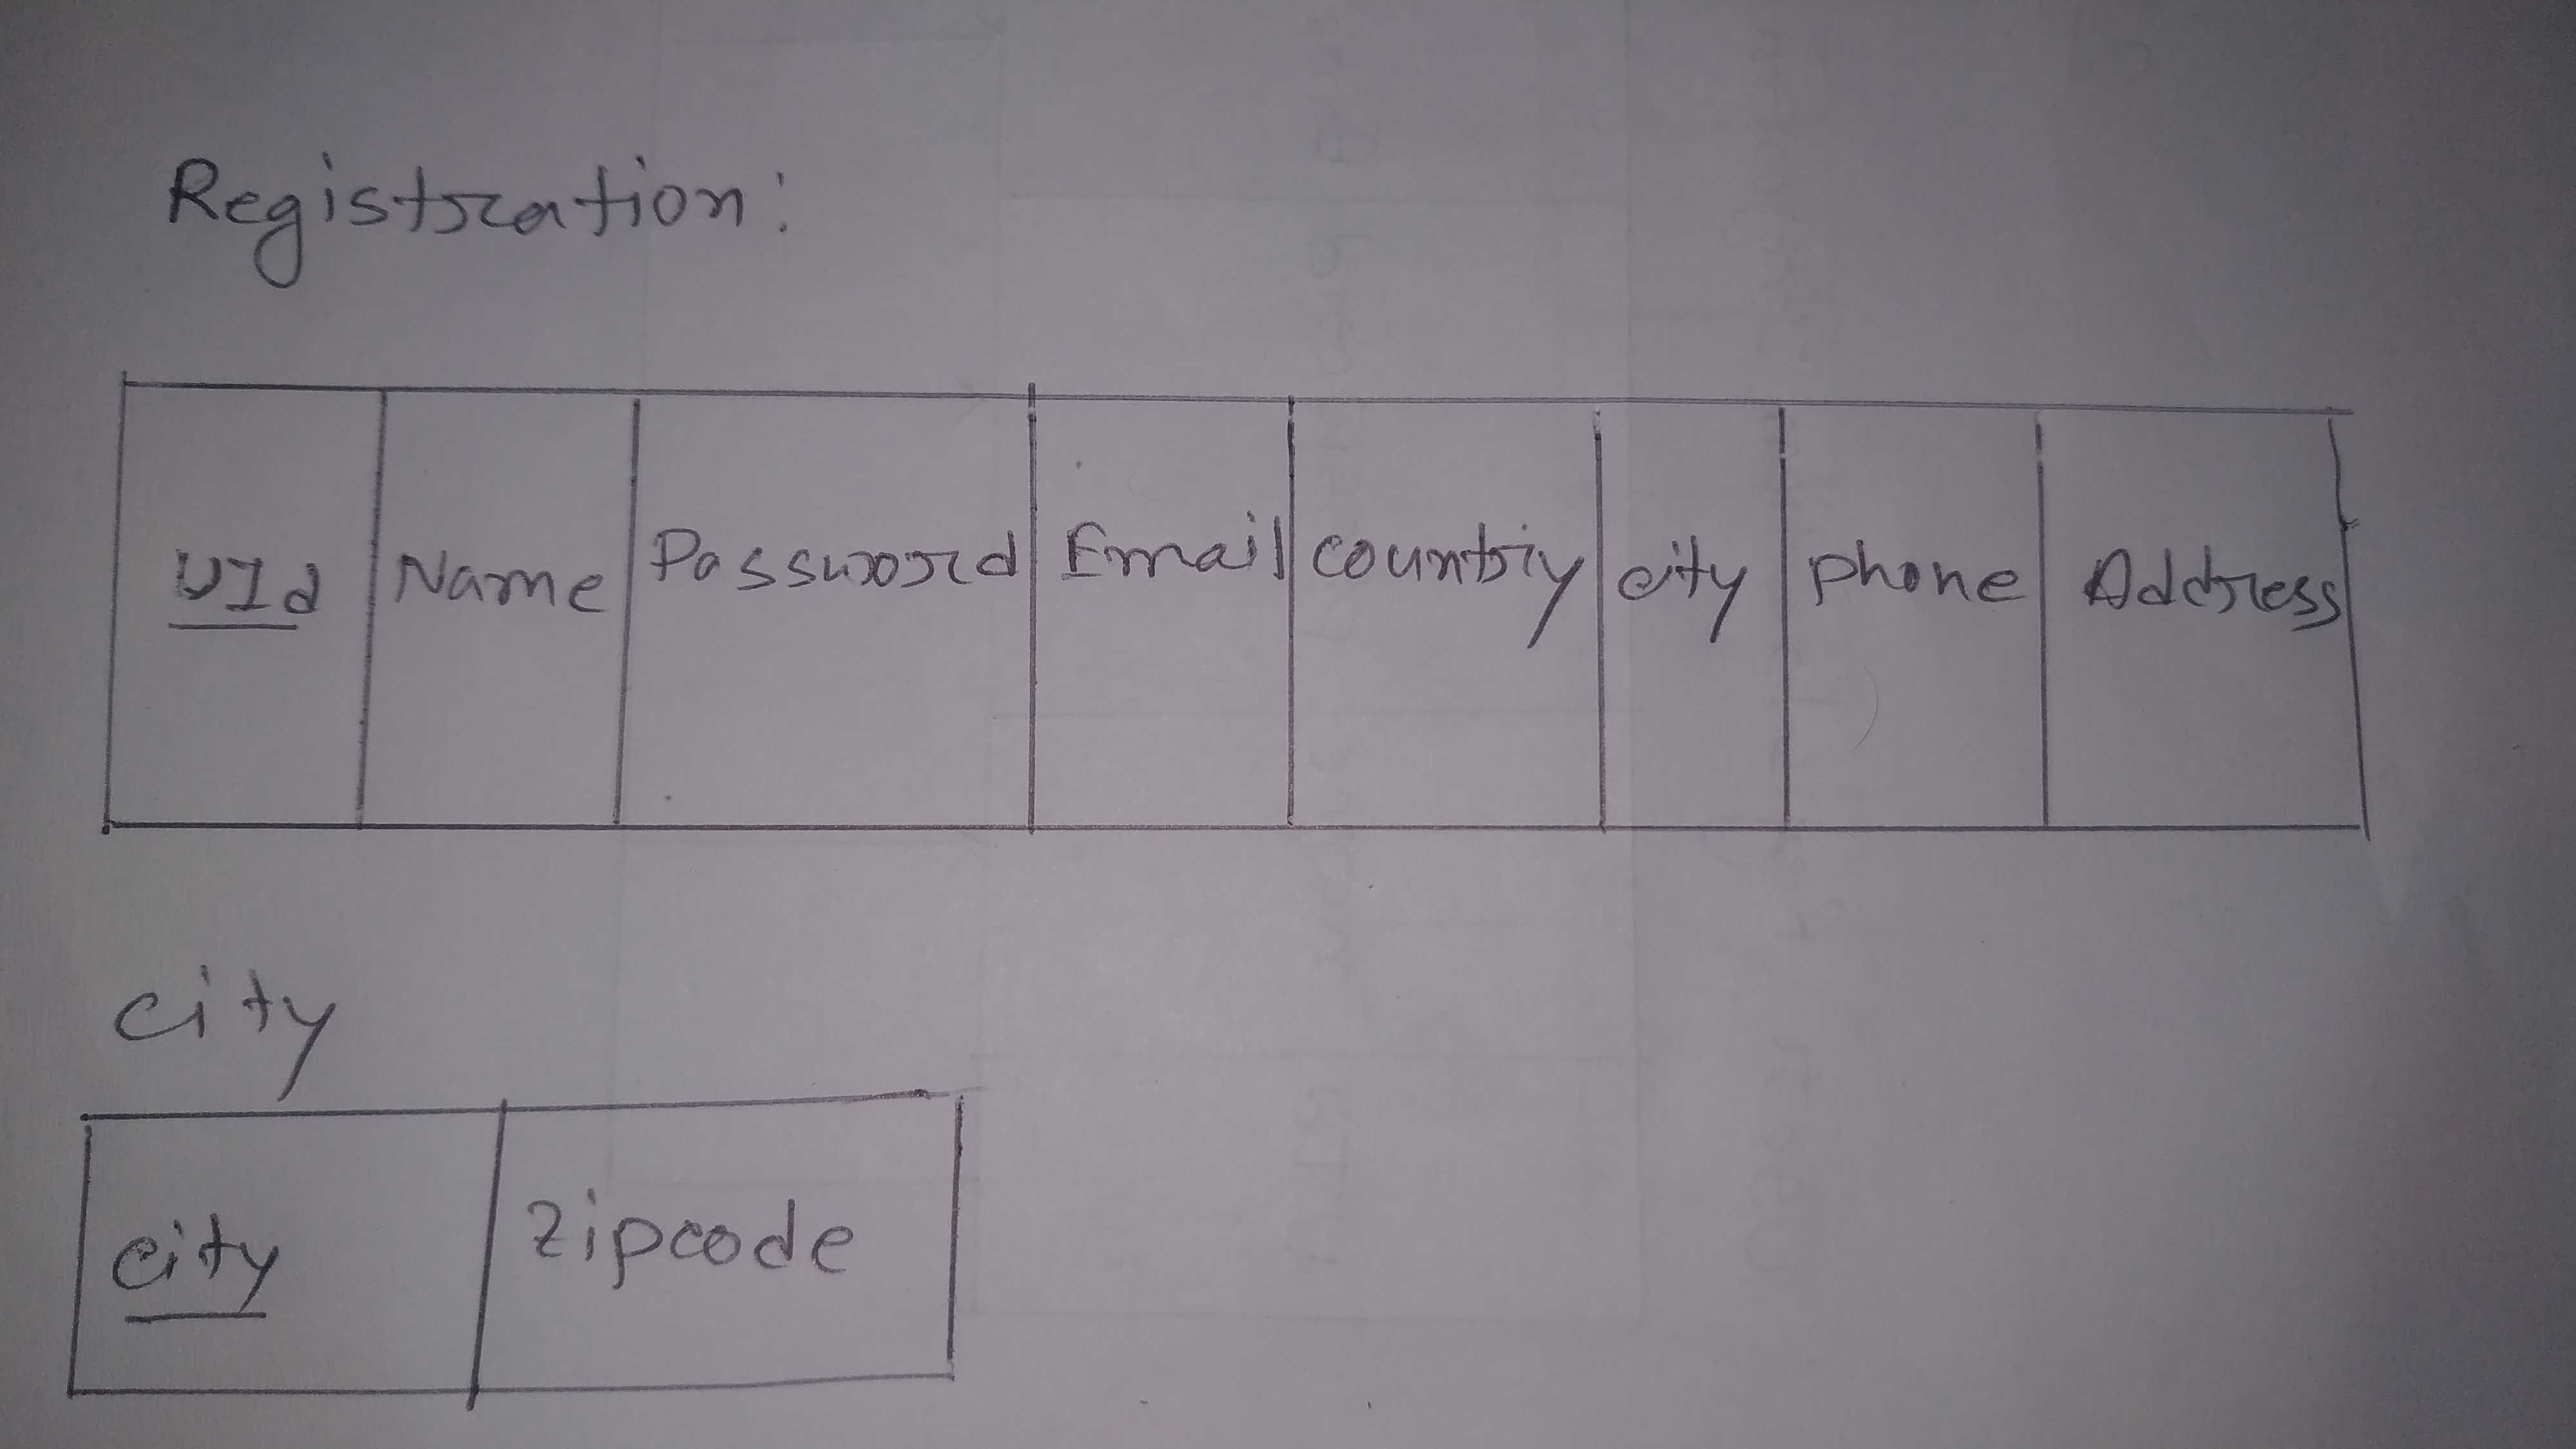 Registration:
UId Name Password Email country city phone Address
city
city zipcode